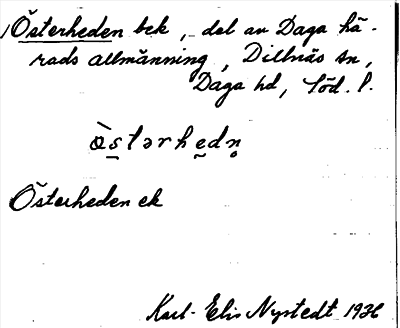 Österheden bek, del av Daga hä-
rads allmänning, Dillnäs sn,
Daga hd, Söd. l.
ò̤s̱tərhe̱dn̥
Österheden ek
Karl-Elis Nystedt 1936